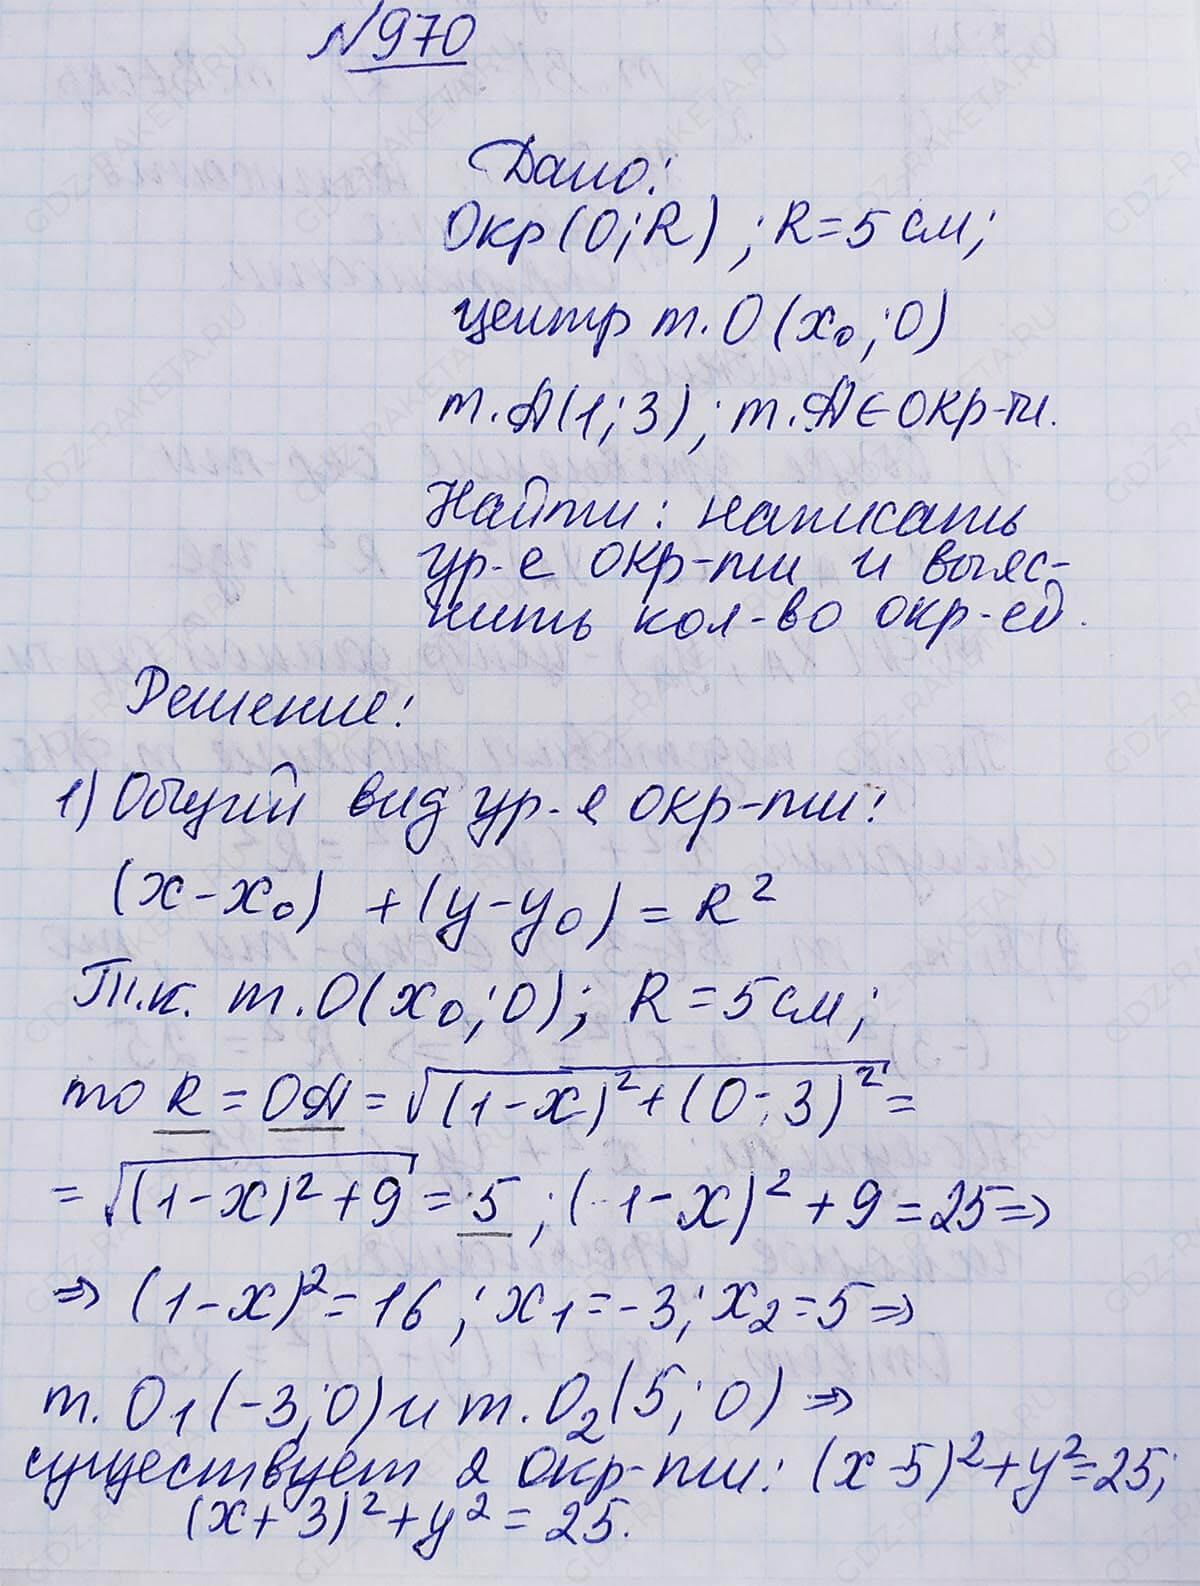 №970
Дано:
Окр(О;R); R=5 см;
центр т.О(x₀;0)
т.А(1;3); т.А∈окр-ти.
Найти: написать
ур-е окр-ти и выяс-
нить кол-во окр-ей.
Решение:
1) Общий вид ур-я окр-ти:
(x-x₀) +(y-y₀)=R²
Т.к. т.О(x₀;0); R=5см;
то R=ОА=√(1-x)²+(0-3)²=
=√(1-x)²+9=5; (1-x)²+9=25⇒
⇒(1-x)²=16; x₁=-3; x₂=5⇒
т.О₁(-3;0) и т.О₂(5;0)⇒
существует 2 окр-ти: (x-5)²+y²=25;
(x+3)²+y²=25.
GDZ-RAKETA.RU